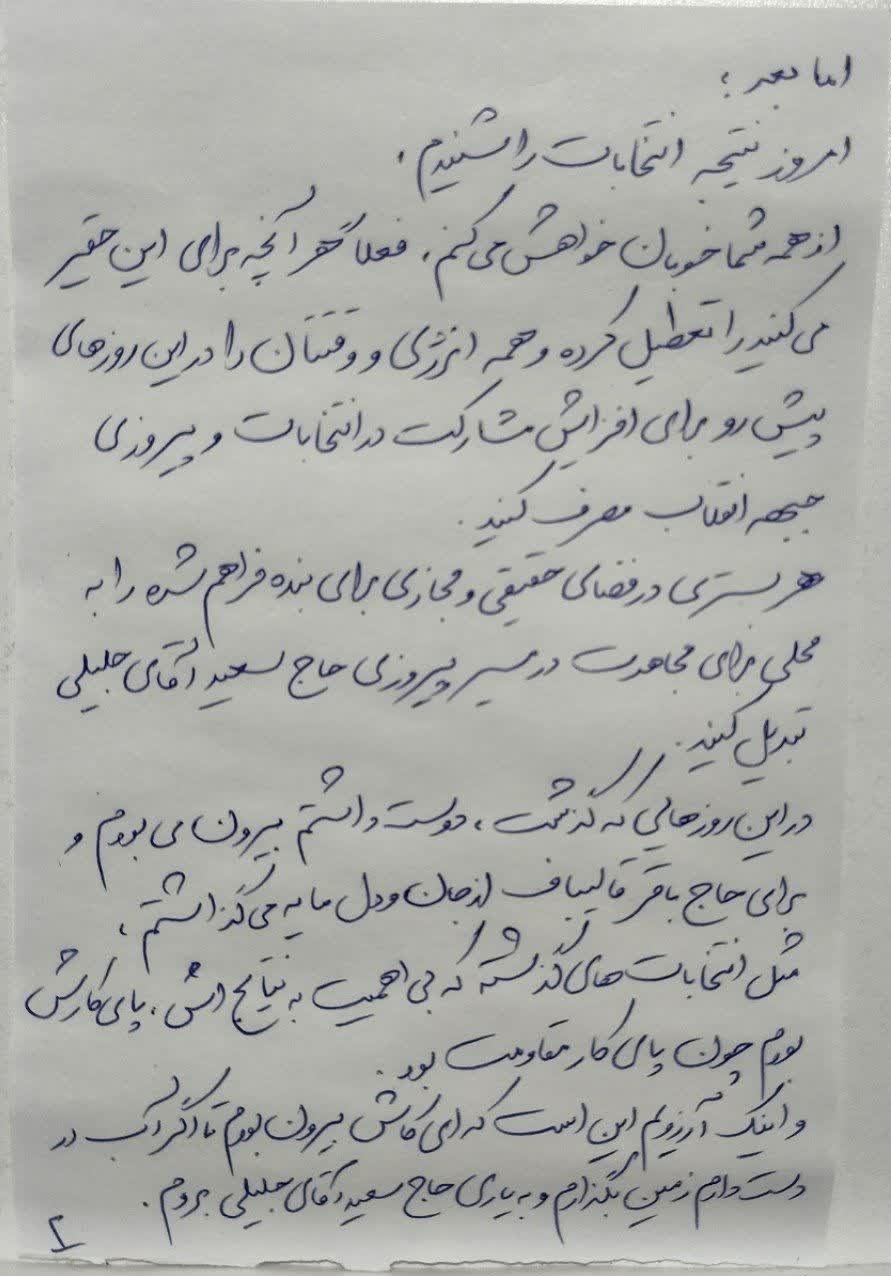 اما بعد؛
امروز نتیجه انتخابات را شنیدم.
از همه شما خوبان خواهش می‌کنم، فعلاً هر آنچه برای این حقیر
می‌کنید را تعطیل کرده و همه انرژی و وقتتان را در این روزهای
پیش رو برای افزایش مشارکت در انتخابات و پیروزی
جبهه انقلاب مصرف کنید.
هر بستری در فضای حقیقی و مجازی برای بنده فراهم شده را به
محلی برای مجاهدت در مسیر پیروزی حاج سعید آقای جلیلی
تبدیل کنید.
در این روزهایی که گذشت، دوست داشتم بیرون می‌بودم و
برای حاج باقر قالیباف از جان و دل مایه می‌گذاشتم،
مثل انتخابات‌های گذشته که بی‌اهمیت به نتایج‌اش، پای کارش
بودم چون پای کار مقاومت بود.
و اینک آرزویم این است که ای کاش بیرون بودم تا اگر آب در
دست دارم زمین بگذارم و به یاری حاج سعید آقای جلیلی بروم.
۲